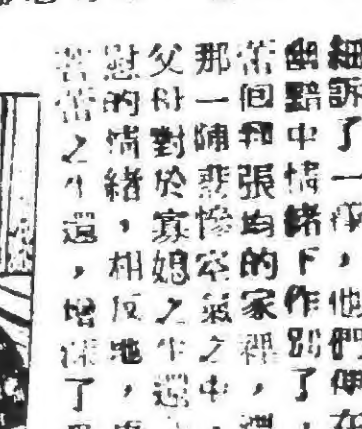 細訴了一，他們在
幽黯中情緒下作別了
蕾回到張均的家裡，
那一陣悲慘空氣之中，
父母對於寡媳之生還
慰的情緒，相反地，
蕾之生還，增了